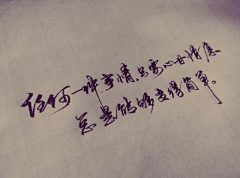 任何一件事情只要心甘情愿
总是能够变得简单。